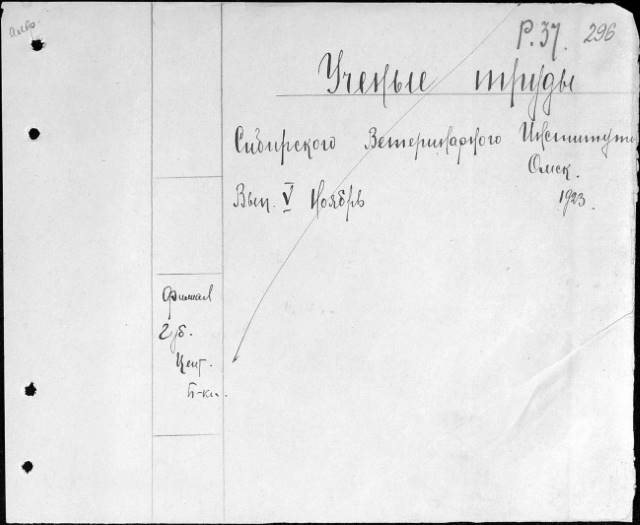 алф.
Р. 37. 296
Ученые труды
Сибирского Ветеринарного Института
Омск.
Вып. V Ноябрь 1923.
Филиал
Губ.
Цент.
Б-ки.